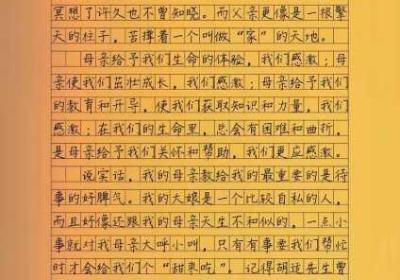 冥想了许久也不曾知晓。而父亲更像是一根擎
天的柱子，苦撑着一个叫做“家”的天地。
母亲给予我们生命的体验，我们感激；母
亲使我们茁壮成长，我们感激；母亲给予我们
的教育和开导，使我们获取知识和力量，我们
感激；在我们的生命里，总会有困难和曲折，
是母亲给予我们关怀和帮助，我们更应感激。
说实话，我的母亲教给我的最重要的是待
事的好脾气。我的大娘是一个比较自私的人，
而且好像还跟我的母亲天生不和似的，一点小
事就对我母亲大呼小叫，只有有事要我们帮忙
时才会给我们个“甜枣吃”。记得胡适先生曾